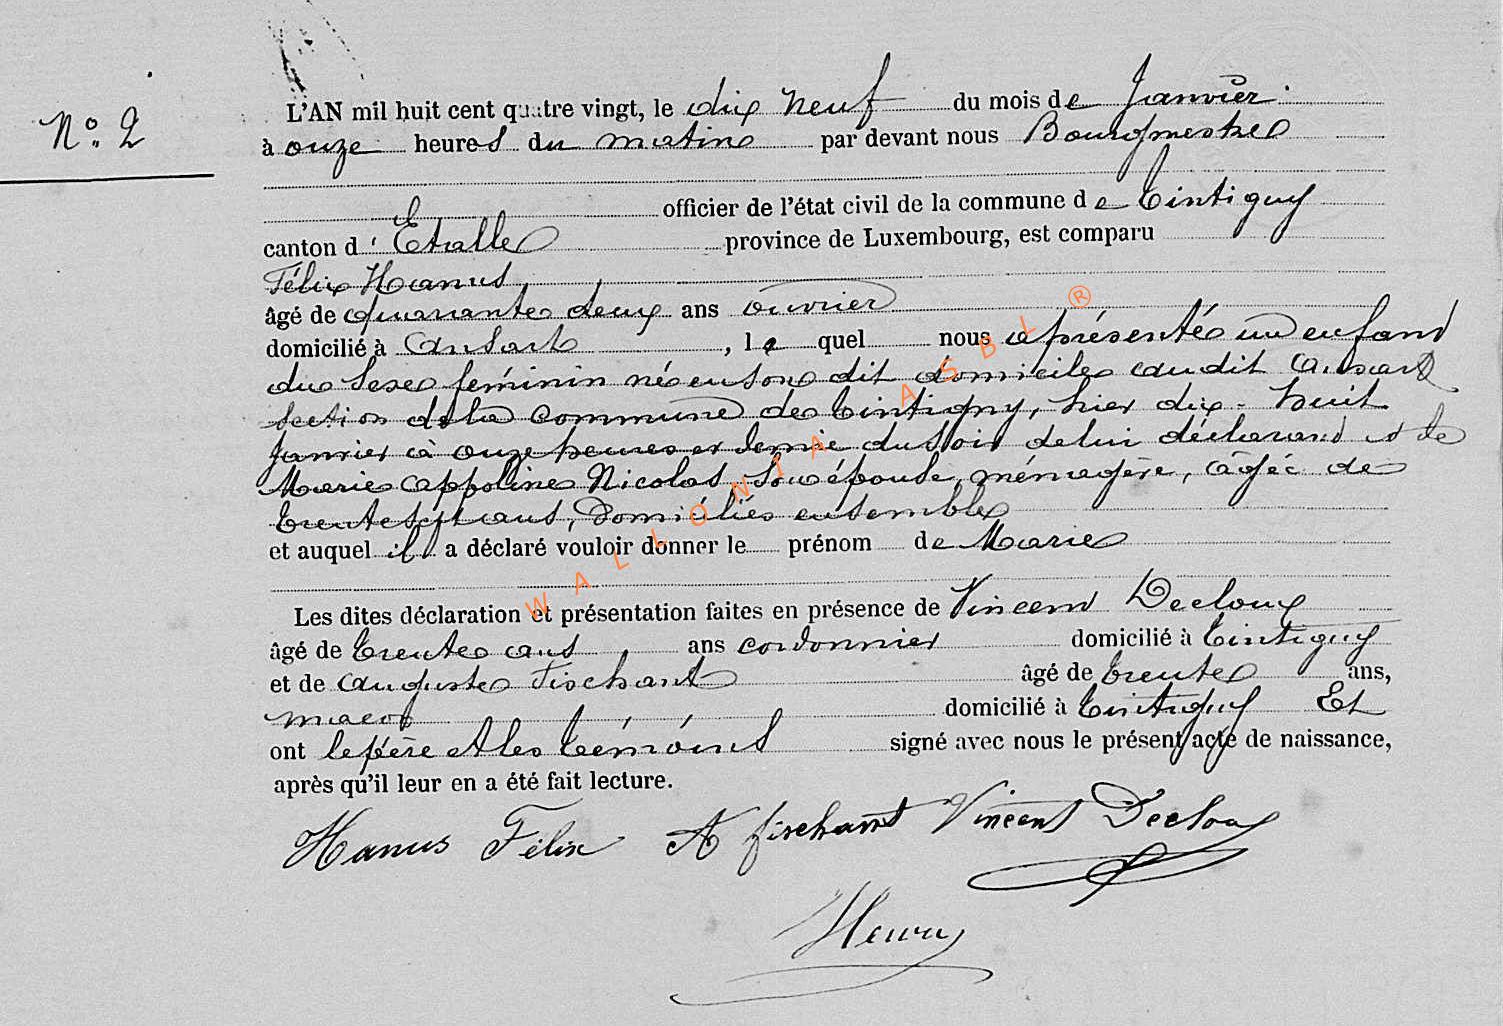 N° 2
L'AN mil huit cent quatre vingt, le dix neuf du mois de Janvier
à onze heures du matin par devant nous Bourgmestre
officier de l'état civil de la commune de Tintigny
canton d'Etalle province de Luxembourg, est comparu
Félix Hanus
âgé de quarante deux ans ouvrier
domicilié à Ansart, le quel nous a présenté un enfant
du sexe féminin né en son dit domicile au dit Ansart
section de la commune de Tintigny, hier dix-huit
Janvier à onze heures et demie du soir de lui déclarant et de
Marie Appoline Nicolas son épouse, ménagère, âgée de
trente sept ans, domiciliés ensemble
et auquel il a déclaré vouloir donner le prénom de Marie
Les dites déclaration et présentation faites en présence de Vincent Decloux
âgé de trente ans ans cordonnier domicilié à Tintigny
et de Auguste Fischant âgé de trente ans,
domicilié à Tintigny Et
ont le père et les témoins signé avec nous le présent acte de naissance,
après qu'il leur en a été fait lecture.
Hanus Félix A fischant Vincent Decloux
Henry
WALLONIA ASBL ®